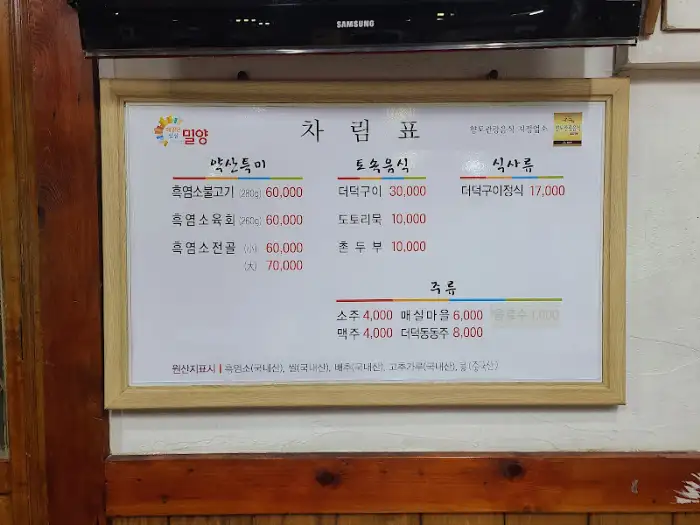 SAMSUNG
밀양
차림표
향토관광음식 지정업소
약산특미
흑염소불고기 (280g) 60,000
흑염소육회 (260g) 60,000
흑염소전골 (小) 60,000
(大) 70,000
토속음식
더덕구이 30,000
도토리묵 10,000
촌두부 10,000
식사류
더덕구이정식 17,000
주류
소주 4,000 매실마을 6,000 음료수 1,000
맥주 4,000 더덕동동주 8,000
원산지표시 | 흑염소(국내산), 쌀(국내산), 배추(국내산), 고추가루(국내산), 콩(중국산)